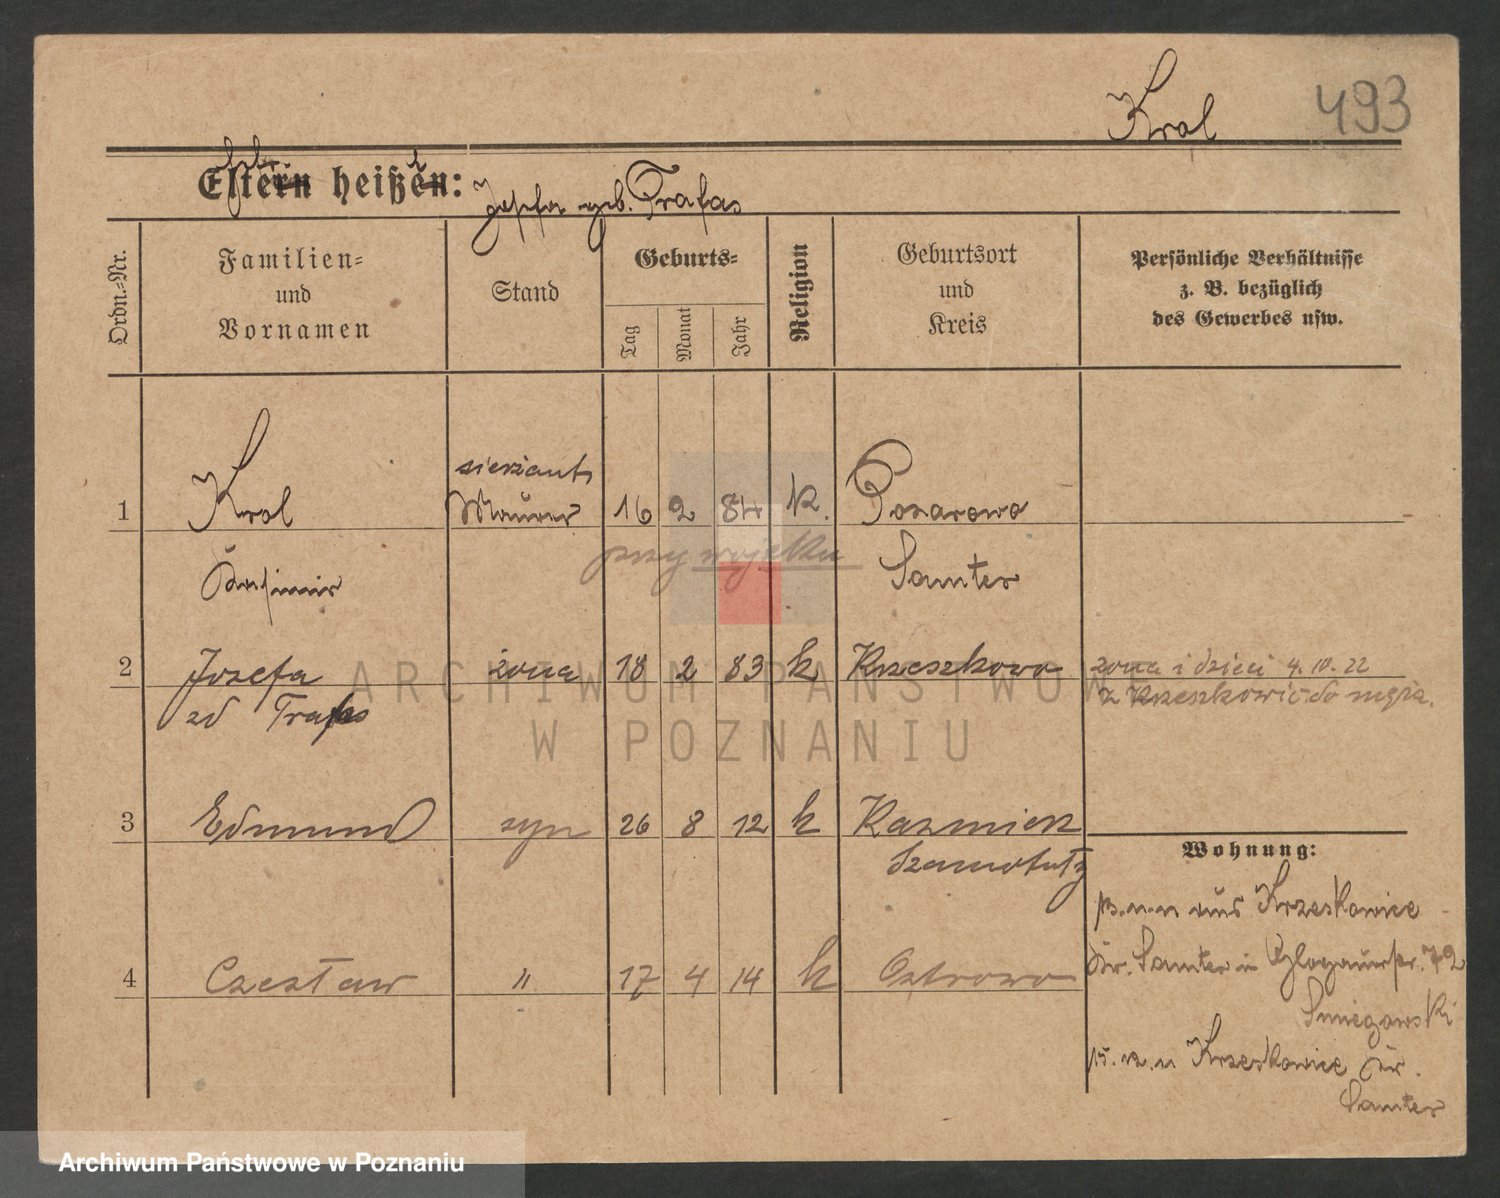 Krol 493
Eltern heißen:
Josefa geb. Trafas
Ordn.=Nr.
Familien=
und
Vornamen
Stand
Geburts=
Tag
Monat
Jahr
Religion
Geburtsort
und
Kreis
Persönliche Verhältnisse
z. B. bezüglich
des Gewerbes usw.
sierżant
1 Krol Maurer 16 2 84 k. Pozarowo
przy wojsku
Kasimir Samter
2 Jozefa żona 18 2 83 k Krzeszkowo żona i dzieci 4.10.22
zd Trafas z Krzeszkowic do męża.
3 Edmund syn 26 8 12 k Kazmierz
Szamotuły
Wohnung:
aus Krzeskowice
4 Czesław " 17 4 14 k Ostrowo
Kr. Samter in Glogauerstr. 72
Sniegowski
Krzeskowice Kr.
Samter
ARCHIWUM PAŃSTWOWE
W POZNANIU
Archiwum Państwowe w Poznaniu